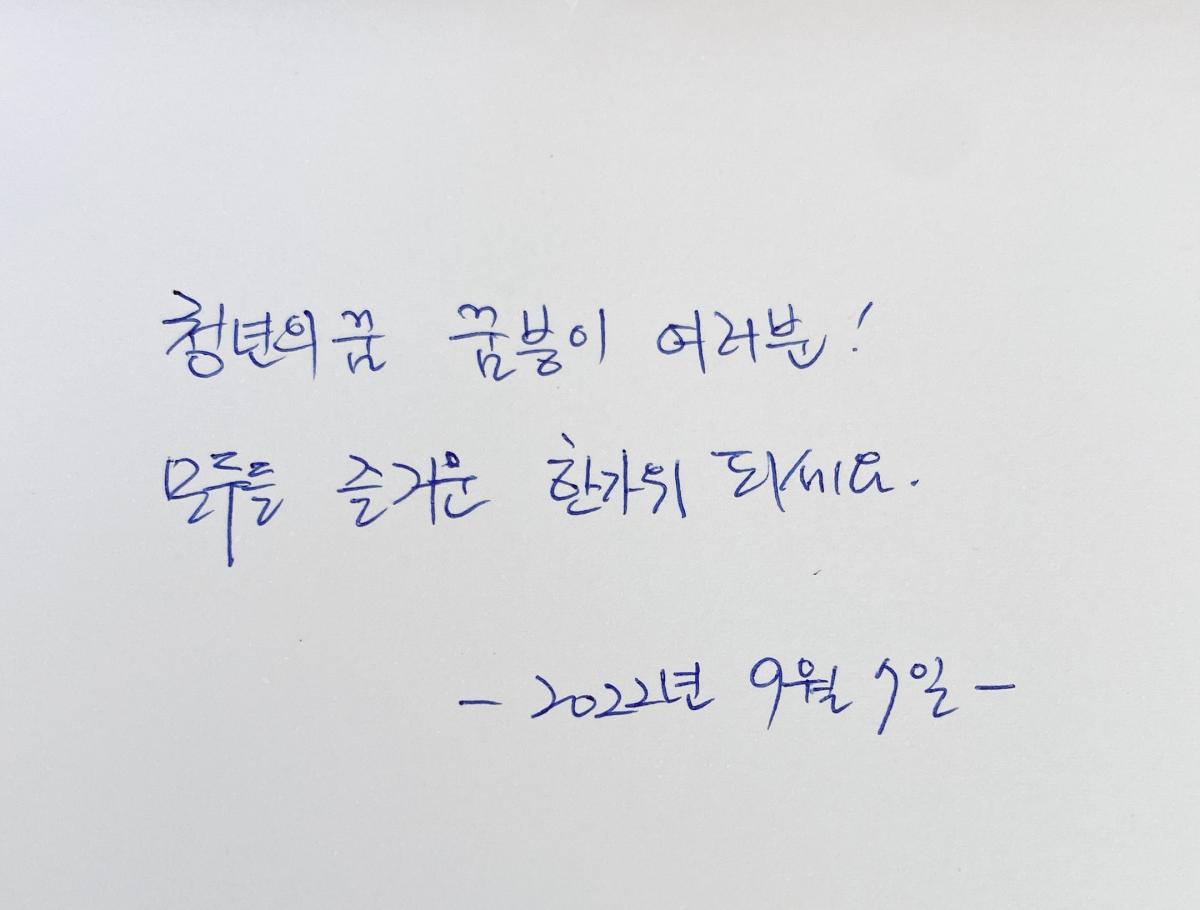 청년의꿈 꿈붕이 여러분!
모두들 즐거운 한가위 되세요.
- 2022년 9월 7일 -